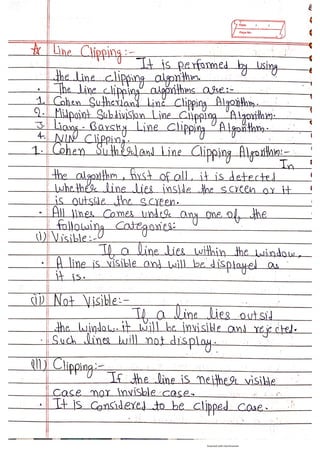 ☆ Line Clipping:-
It is performed by using
the line clipping algorithm.
• The line clipping algorithms are:-
1. Cohen Sutherland Line Clipping Algorithm.
2. Midpoint Subdivision Line Clipping Algorithm.
3. Liang-Barsky Line Clipping Algorithm.
4. NLN Clipping.
1. Cohen Sutherland Line Clipping Algorithm:-
In
the algorithm, first of all, it is detected
whether line lies inside the screen or it
is outside the screen.
• All lines comes under any one of the
following categories:
(i) Visible:-
If a line lies within the window,
• A line is visible and will be displayed as
it is.
(ii) Not Visible:-
If a line lies outsid
the window. it will be invisible and rejected.
• Such lines will not display.
(iii) Clipping:-
If the line is neither visible
case nor invisble case.
• It is considered to be clipped case.